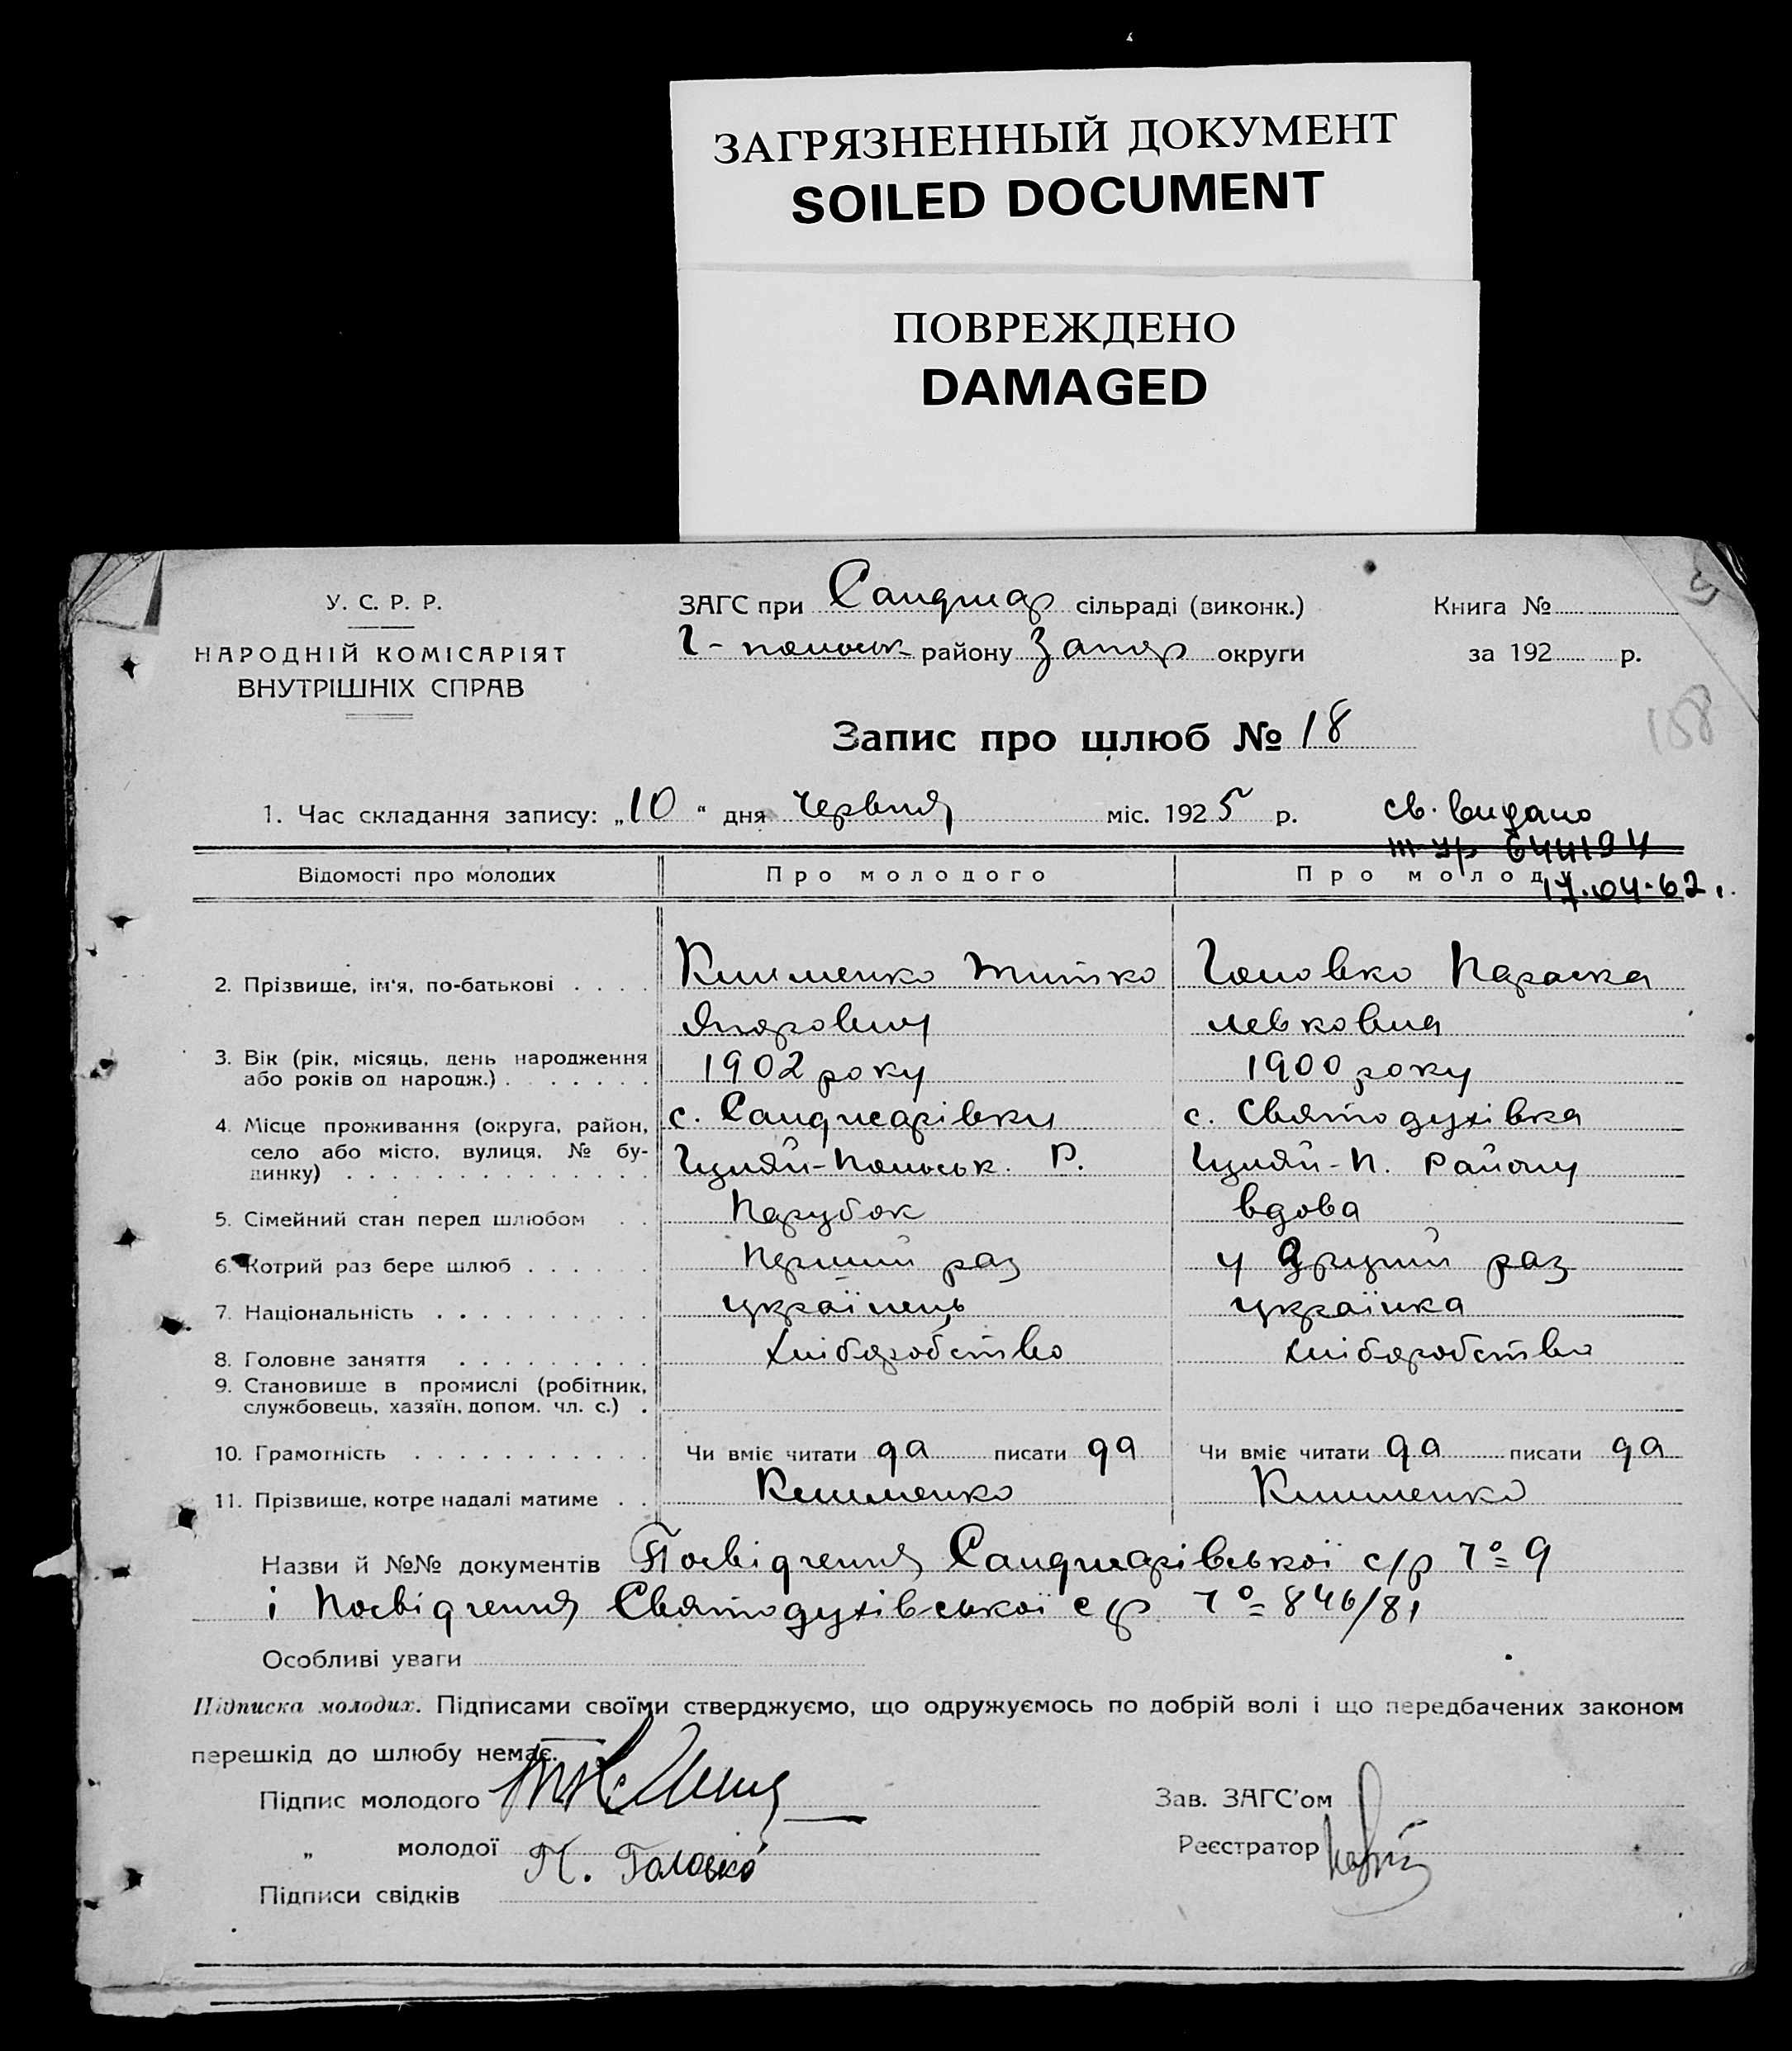 ЗАГРЯЗНЕННЫЙ ДОКУМЕНТ
SOILED DOCUMENT
ПОВРЕЖДЕНО
DAMAGED
У. С. Р. Р.
НАРОДНІЙ КОМІСАРІЯТ
ВНУТРІШНІХ СПРАВ
ЗАГС при Санджар сільраді (виконк.)
Г-польськ району Запор округи
Книга №
за 192 р.
158
Запис про шлюб № 18
1. Час складання запису: „10“ дня червня міс. 1925 р.
св. видано
644194
17.04.62.
Відомості про молодих Про молодого Про молоду
2. Прізвище, ім'я, по-батькові . . . . Клименко Титко Головко Параска
Левковна
3. Вік (рік, місяць, день народження 1902 року 1900 року
або років од народж.) . . . . . . .
4. Місце проживання (округа, район, с. Санджарівки с. Святодухівка
село або місто, вулиця, № бу- Гуляй-Польськ. Р. Гуляй-П. Району
динку) . . . . . . . . . . . . . .
5. Сімейний стан перед шлюбом . . Парубок вдова
6. Котрий раз бере шлюб . . . . . . Перший раз у другий раз
7. Національність . . . . . . . . . . українець українка
8. Головне заняття . . . . . . . . . хліборобство хліборобство
9. Становище в промислі (робітник,
службовець, хазяїн, допом. чл. с.) .
10. Грамотність . . . . . . . . . . . Чи вміє читати да писати да Чи вміє читати да писати да
11. Прізвище, котре надалі матиме . . Клименко Клименко
Назви й №№ документів Посвідчення Санджарівської с/р № 9
і Посвідчення Святодухівської с/р № 846/81
Особливі уваги
Підписка молодих. Підписами своїми стверджуємо, що одружуємось по добрій волі і що передбачених законом
перешкід до шлюбу немає.
Підпис молодого
Зав. ЗАГС'ом
„ молодої П. Головко
Реєстратор
Підписи свідків